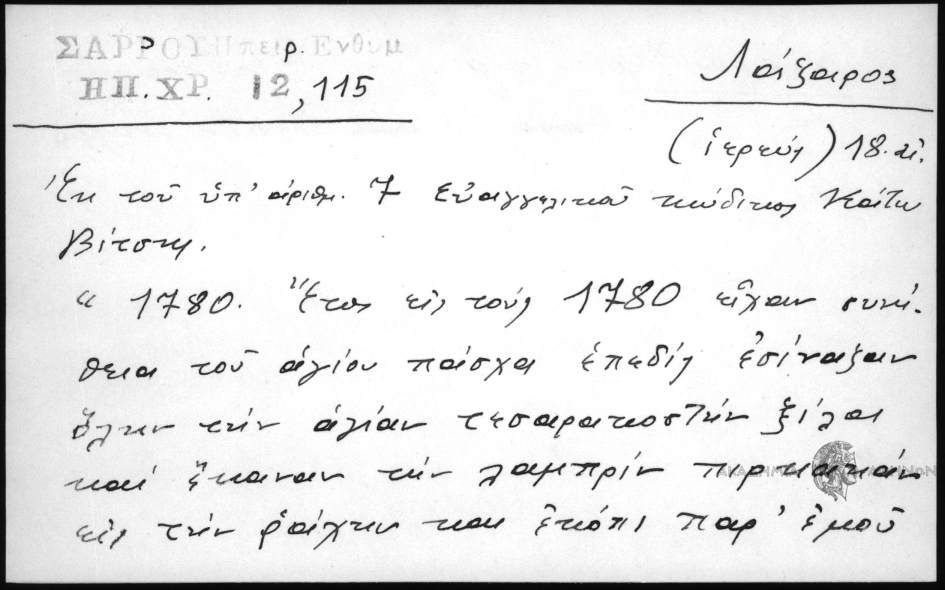 ΣΑΡΡΟΥ Ηπειρ. Ενθυμ
ΗΠ. ΧΡ. 12, 115
Λάζαρος
(ἱερεύς) 18. αἰ.
Ἐκ τοῦ ὑπ' ἀριθμ. 7 Εὐαγγελικοῦ κώδικος Κάτω
Βίτσης.
" 1780. Ἔτος εἰς τούς 1780 εἶχαν συνή-
θεια τοῦ ἁγίου πάσχα ἐπεδίς ἐσίναξαν
ὅλην τήν ἁγίαν τεσαρακοστήν ξίλα
καί ἔκαναν τήν λαμπρίν πιρκακάν
εἰς τήν ῥάχην και ἐκόπι παρ' ἐμοῦ
ΑΚΑΔΗΜΙΑ ΑΘΗΝΩΝ